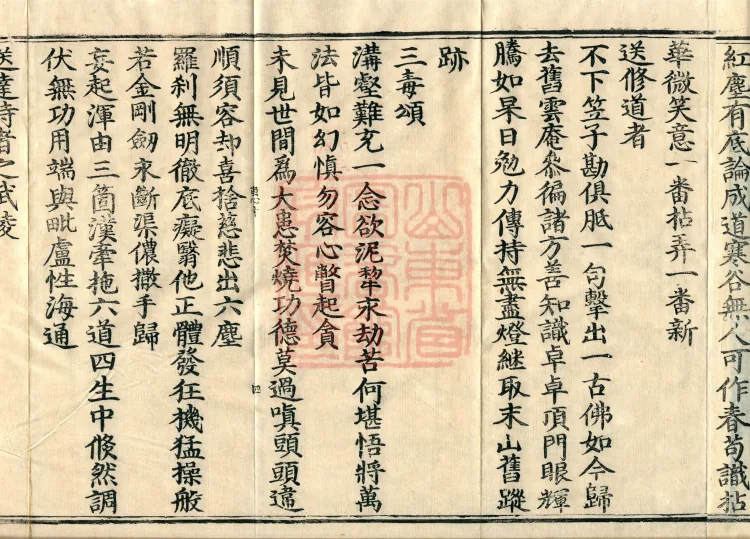 紅塵有底論成道寒谷無人可作春苟識拈
華微笑意一番拈弄一番新
送修道者
不下笠子勘俱胝一句擊出一古佛如今歸
去舊雲庵叅徧諸方善知識卓卓頂門眼輝
騰如杲日勉力傳持無盡燈継取末山舊蹤
跡
三毒頌
溝壑難充一念欲泥犂永劫苦何堪悟將萬
法皆如幻慎勿容心瞥起貪
未見世間爲大患焚燒功德莫過嗔頭頭違
順須容却喜捨慈悲出六塵
羅刹無明徹底癡翳他正體發狂機猛操般
若金剛劒永斷渠儂撒手歸
妄起渾由三箇漢牽拖六道四生中倐然調
伏無功用端與毗盧性海通
送達侍者之武陵
四